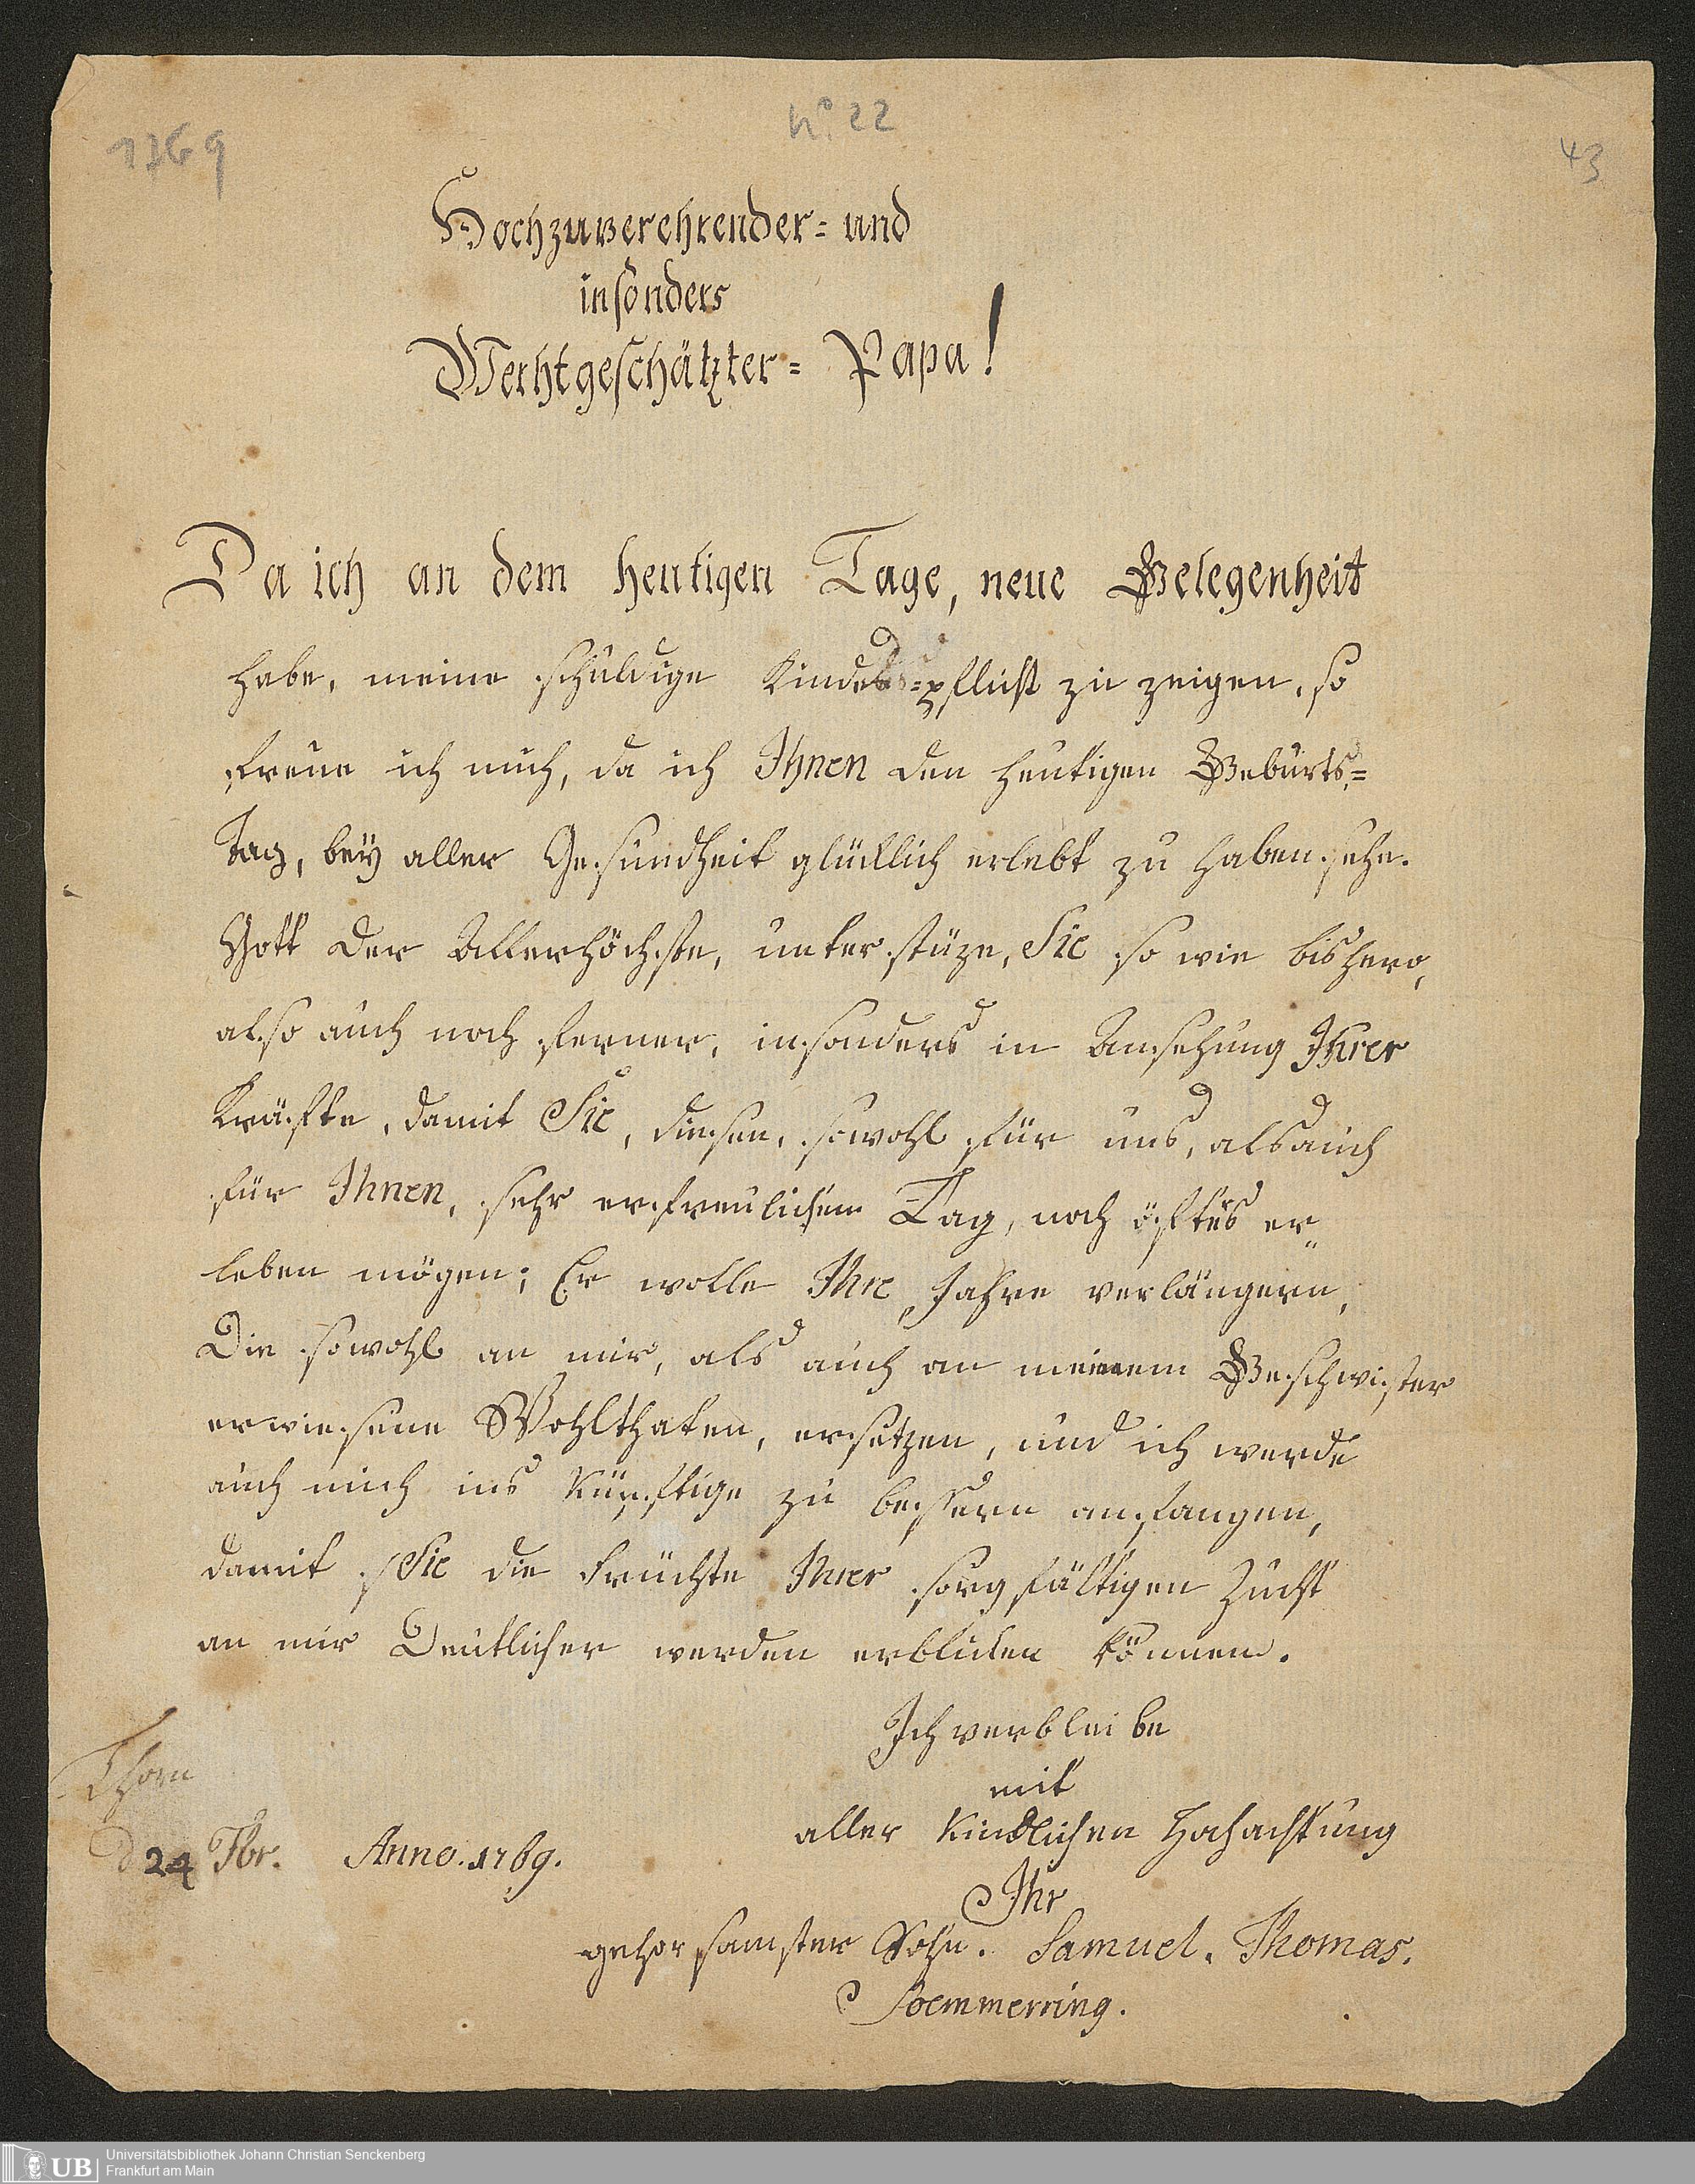 1769
No 22
43
Hochzuverehrender= und
insonders
Werhtgeschätzter= Papa!
Da ich an dem heutigen Tage, neue Gelegenheit
habe, meine schuldige Kindes=pflicht zu zeigen, so
freue ich mich, da ich Ihnen den heutigen Geburts=
Tag, bey aller Gesundheit glücklich erlebt zu haben sehe.
Gott der Allerhöchste, unterstüze, Sie so wie bishero,
also auch noch ferner, insonders in Ansehung Ihrer
Kräfte, damit Sie, diesen, sowohl für uns, als auch
für Ihnen, sehr erfreulichen Tag, noch öfters er„
leben mögen; Er wolle Ihre Jahre verlängern,
Die sowohl an mir, als auch an meinem Geschwister
erwiesene Wohlthaten, ersetzen, und ich werde
auch mich ins Künftige zu bessern anfangen,
damit Sie die Früchte Ihrer sorgfältigen Zucht
an mir Deutlicher werden erblicken können.
Ich verbleibe
mit
Thorn
aller Kindlichen Hochachtung
d 24 7br. Anno. 1769.
Ihr
gehorsamster Sohn. Samuel. Thomas.
Soemmerring.
UB
Universitätsbibliothek Johann Christian Senckenberg
Frankfurt am Main